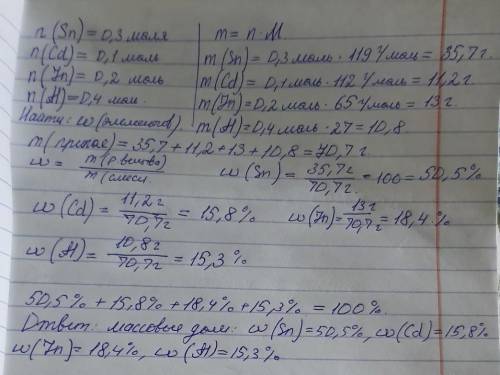 n(Sn) = 0,3 моля
n(Cd) = 0,1 моль
n(Zn) = 0,2 моль
n(Al) = 0,4 мол.
Найти: ω(элементов).
m = n · M
m(Sn) = 0,3 моль · 119 г/моль = 35,7 г.
m(Cd) = 0,1 моль · 112 г/моль = 11,2 г.
m(Zn) = 0,2 моль · 65 г/моль = 13 г.
m(Al) = 0,4 моль · 27 = 10,8
m(припоя) = 35,7 + 11,2 + 13 + 10,8 = 70,7 г.
ω = m(р.вещ-ва) / m(смеси) ω(Sn) = 35,7 г / 70,7 г · 100 = 50,5%
ω(Cd) = 11,2 г / 70,7 г = 15,8% ω(Zn) = 13 г / 70,7 г = 18,4%
ω(Al) = 10,8 г / 70,7 г = 15,3%
50,5% + 15,8% + 18,4% + 15,3% = 100%
Ответ: массовые доли: ω(Sn) = 50,5%, ω(Cd) = 15,8%
ω(Zn) = 18,4%, ω(Al) = 15,3%